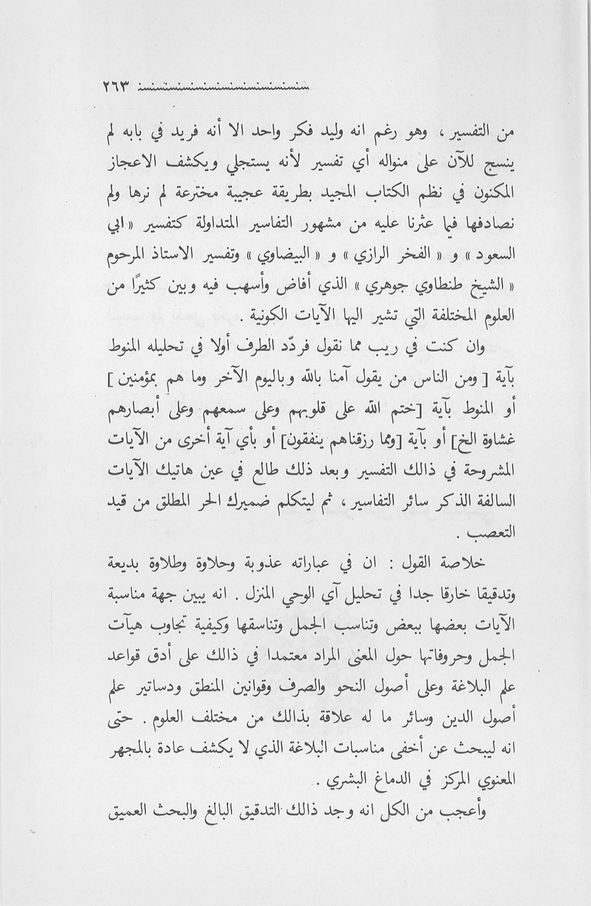 ٢٦٣
من التفسير ، وهو رغم انه وليد فكر واحد الا أنه فريد في بابه لم
ينسج للآن على منواله أي تفسير لأنه يستجلي ويكشف الاعجاز
المكنون في نظم الكتاب المجيد بطريقة عجيبة مخترعة لم نرها ولم
نصادفها فيما عثرنا عليه من مشهور التفاسير المتداولة كتفسير « ابي
السعود » و « الفخر الرازي » و « البيضاوي » وتفسير الاستاذ المرحوم
« الشيخ طنطاوي جوهري » الذي أفاض وأسهب فيه وبين كثيرًا من
العلوم المختلفة التي تشير اليها الآيات الكونية .
وان كنت في ريب مما نقول فردّد الطرف أولا في تحليله المنوط
بآية [ ومن الناس من يقول آمنا بالله وباليوم الآخر وما هم بمؤمنين ]
أو المنوط بآية [ختم الله على قلوبهم وعلى سمعهم وعلى أبصارهم
غشاوة الخ] أو بآية [ومما رزقناهم ينفقون] أو بأي آية أخرى من الآيات
المشروحة في ذالك التفسير وبعد ذلك طالع في عين هاتيك الآيات
السالفة الذكر سائر التفاسير ، ثم ليتكلم ضميرك الحر المطلق من قيد
التعصب .
خلاصة القول : ان في عباراته عذوبة وحلاوة وطلاوة بديعة
وتدقيقا خارقا جدا في تحليل آي الوحي المنزل . انه يبين جهة مناسبة
الآيات بعضها ببعض وتناسب الجمل وتناسقها وكيفية تجاوب هيآت
الجمل وحروفاتها حول المعنى المراد معتمدا في ذالك على أدق قواعد
علم البلاغة وعلى أصول النحو والصرف وقوانين المنطق ودساتير علم
أصول الدين وسائر ما له علاقة بذالك من مختلف العلوم . حتى
انه ليبحث عن أخفى مناسبات البلاغة الذي لا يكشف عادة بالمجهر
المعنوي المركز في الدماغ البشري .
وأعجب من الكل انه وجد ذالك التدقيق البالغ والبحث العميق